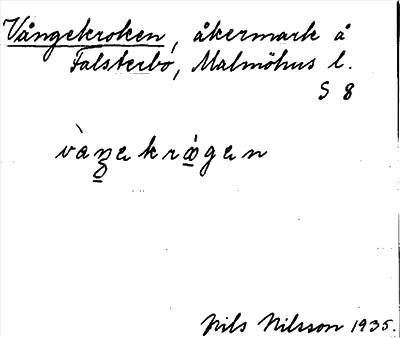 Vångekroken, åkermark å
Falsterbo, Malmöhus l.
S 8
vàŋekrógen
Nils Nilsson 1935.